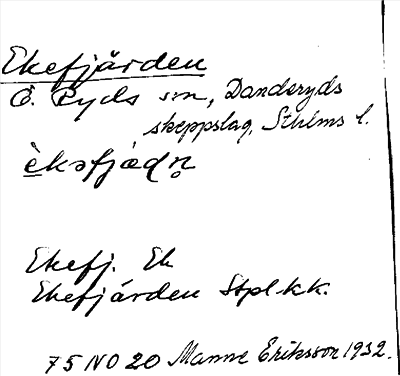 Ekefjärden
Ö. Ryds sn, Danderyds
skeppslag, Sthlms l.
èkəfjædn̥
Ekefj. Ek
Ekefjärden Stpl kk.
75 NO 20 Manne Eriksson 1932.